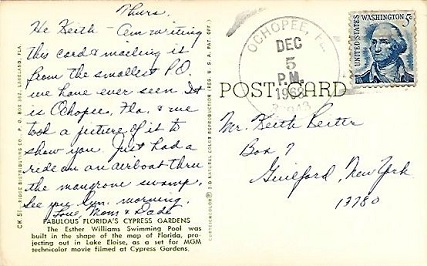 Thurs.
Hi Keith. Am writing
this card & mailing it
from the smallest P.O.
we have ever seen. It
is Ochopee, Fla. & we
took a picture of it to
show you. Just had a
ride on an airboat thru
the mangrove swamp.
See you Sun. morning.
Love, Mom & Dad
FABULOUS FLORIDA'S CYPRESS GARDENS
The Esther Williams Swimming Pool was
built in the shape of the map of Florida, pro-
jecting out in Lake Eloise, as a set for MGM
technicolor movie filmed at Cypress Gardens.
OCHOPEE FL.
DEC
5
P.M.
UNITED STATES
WASHINGTON 5c
POST CARD
Mr. Keith
Box 7
Guilford, New York
13780